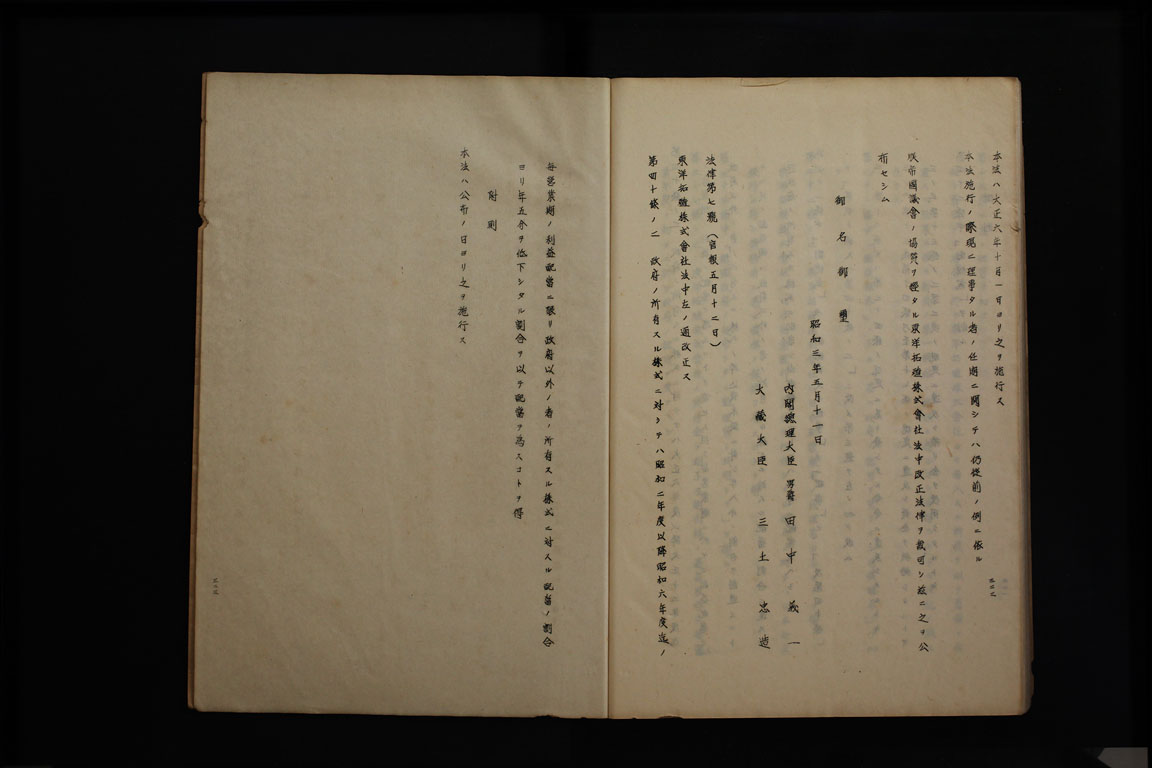 本法ハ大正六年十月一日ヨリ之ヲ施行ス
本法施行ノ際現ニ理事タル者ノ任期ニ関シテハ仍従前ノ例ニ依ル
朕帝國議會ノ協賛ヲ経タル東洋拓殖株式會社法中改正法律ヲ裁可シ玆ニ之ヲ公
布セシム
御名御璽
昭和三年五月十一日
内閣總理大臣 男爵 田中義一
大藏大臣 三土忠造
法律第七號（官報五月十二日）
東洋拓殖株式會社法中左ノ通改正ス
第四十條ノ二 政府ノ所有スル株式ニ対シテハ昭和二年度以降昭和六年度迄ノ
毎営業期ノ利益配當ニ限リ政府以外ノ者ノ所有スル株式ニ対スル配當ノ割合
ヨリ年五分ヲ低下シタル割合ヲ以テ配當ヲ為スコトヲ得
附則
本法ハ公布ノ日ヨリ之ヲ施行ス